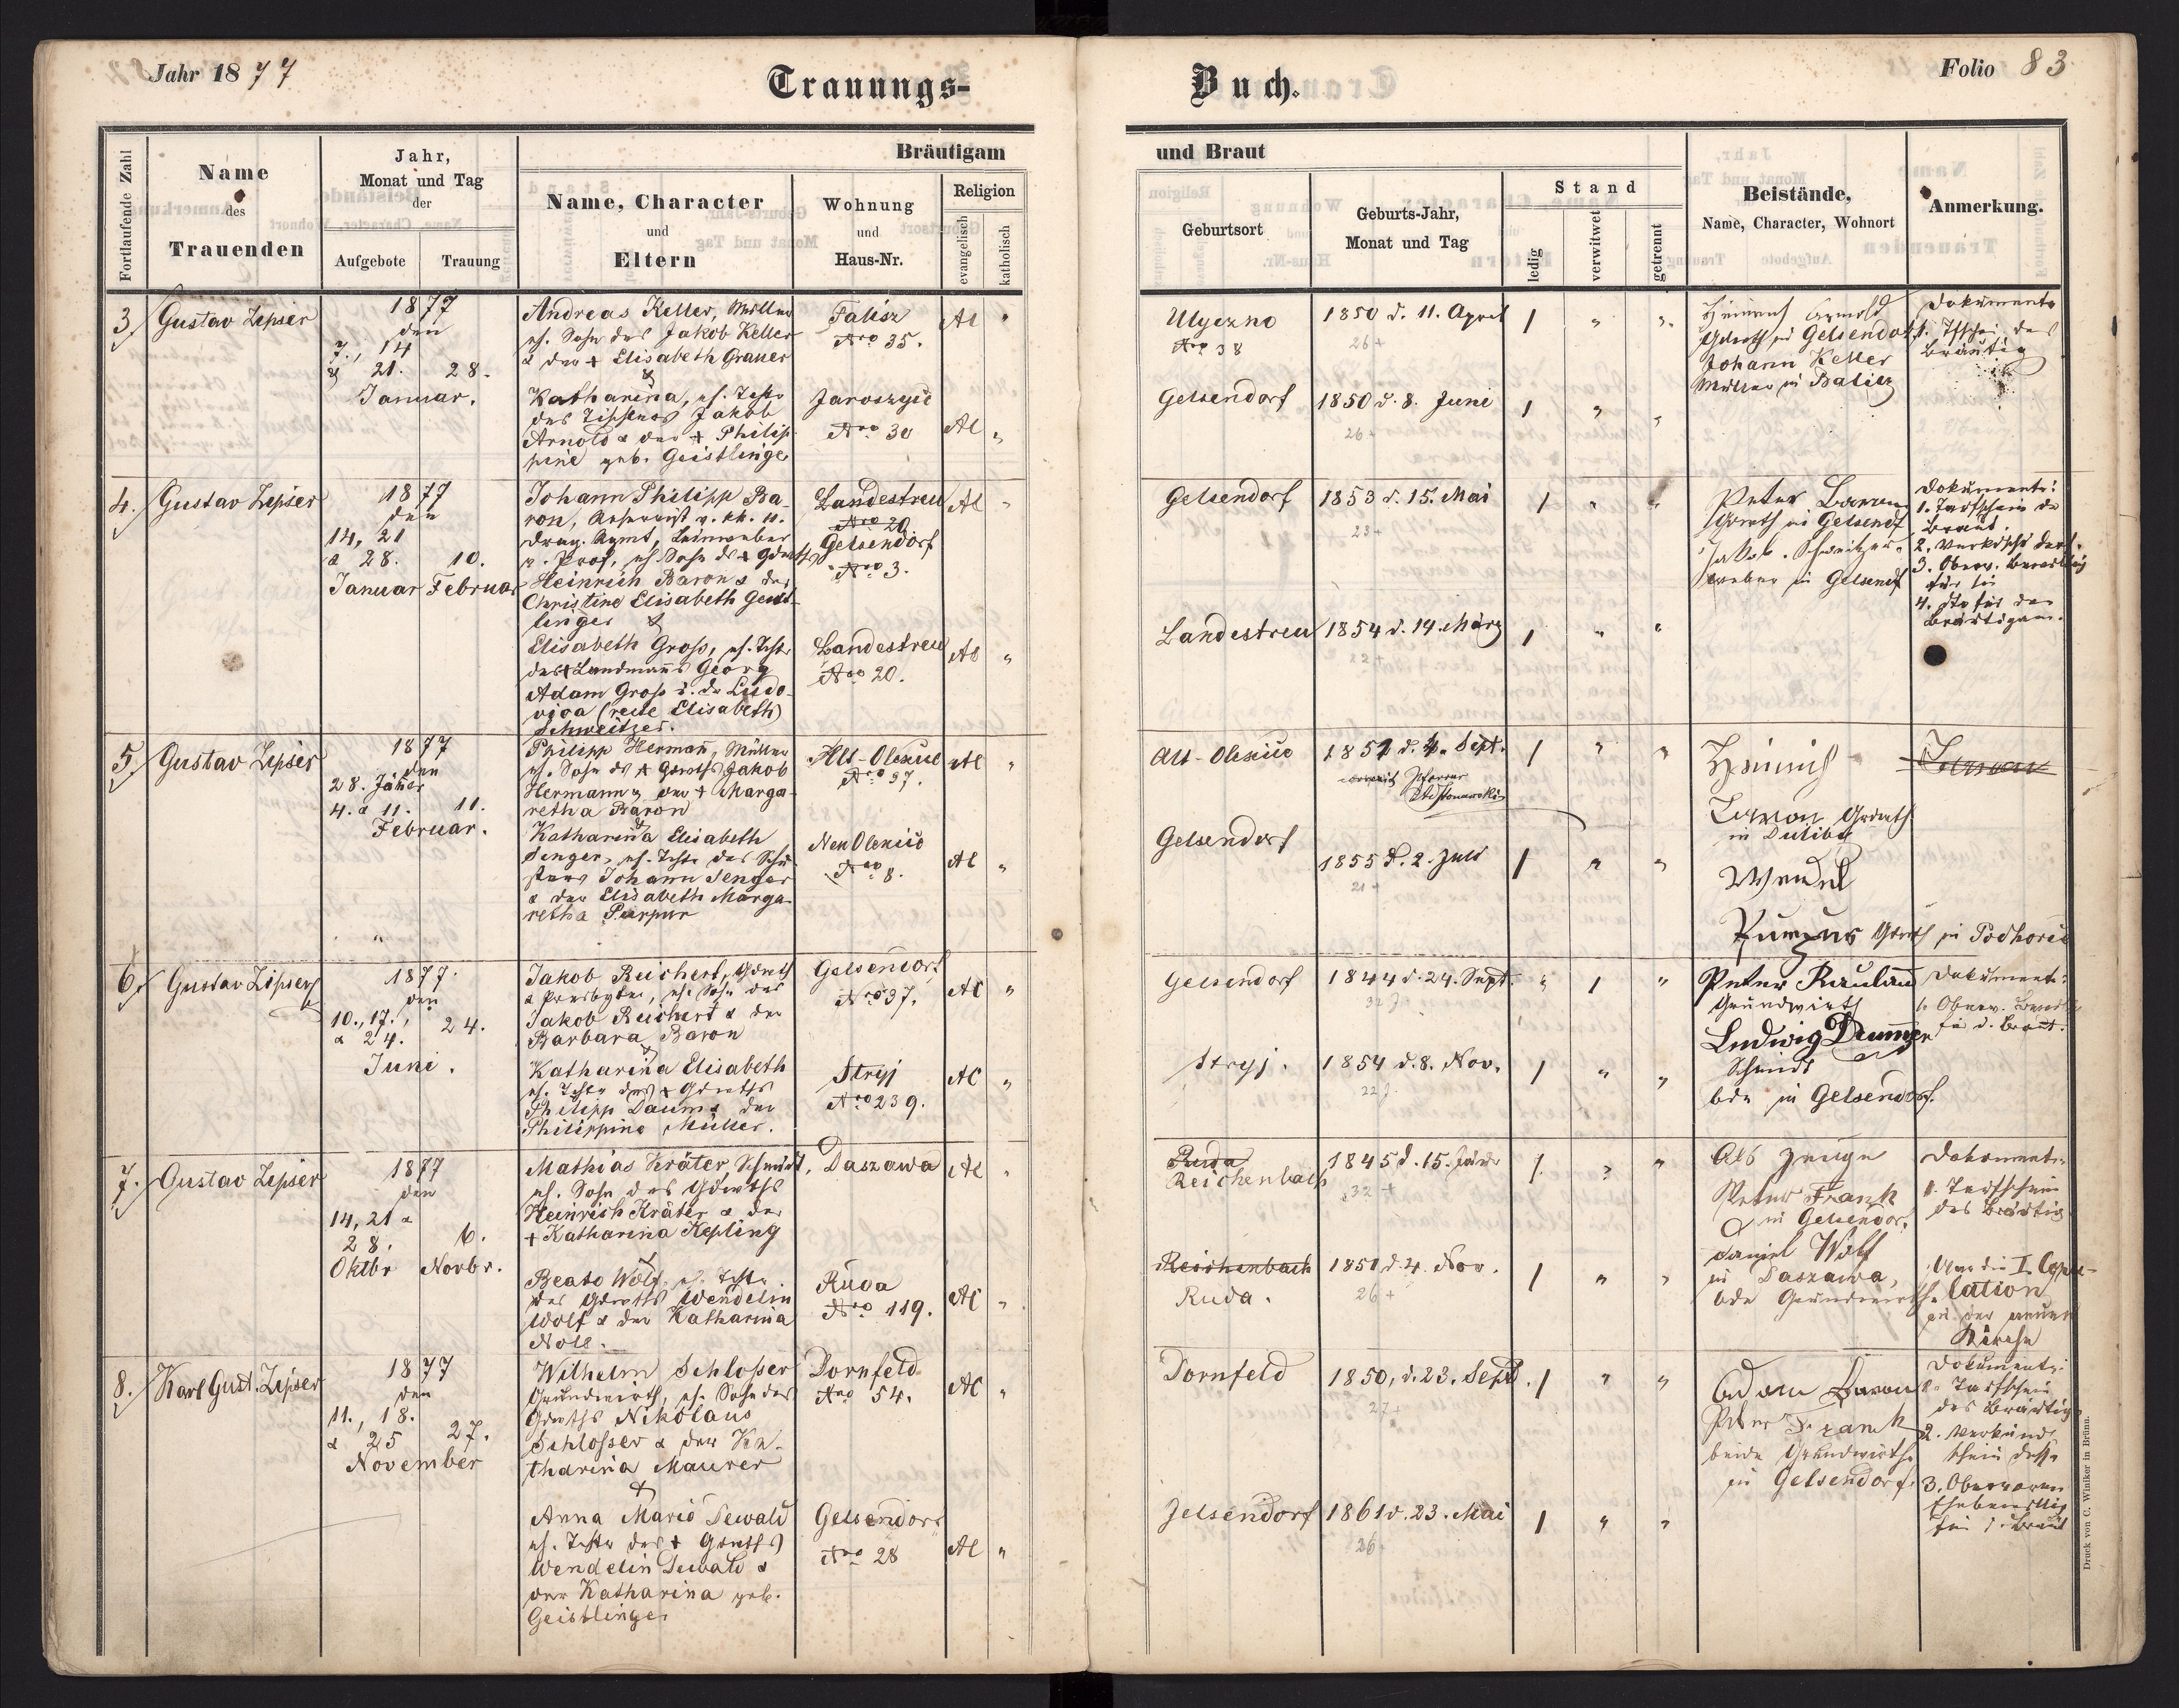 Jahr 1877
Trauungs-
Buch.
Folio 83
Fortlaufende Zahl
Name
des
Trauenden
Jahr,
Monat und Tag
der
Aufgebote
Trauung
Bräutigam
und Braut
Name, Character
und
Eltern
Wohnung
und
Haus-Nr.
Religion
evangelisch
katholisch
Geburtsort
Geburts-Jahr,
Monat und Tag
Stand
ledig
verwitwet
getrennt
Beistände,
Name, Character, Wohnort
Anmerkung.
3.
Gustav Zipser
1877
den
7., 14
& 21. 28.
Januar.
Andreas Keller, Müller
eh. Sohn des Jakob Keller
& der + Elisabeth Grauer
&
Katharina, eh. Tochter
des Tischlers Jakob
Arnold & der + Philip
pine geb. Geistlinger
Falisz
Nro 35.
Jaroszyce
Nro 30
AC "
AC "
Ulyczno
Nro 38
Gelsendorf
1850 d. 11. April
26+
1850 d. 8. Juni
26+
1 " "
1 " "
Heinrich Arnold
Gdwrth in Gelsendorf
Johann Keller
Müller in Balicz
Dokumente
1. Tfschein des
Bräutig
4.
Gustav Zipser
1877
den
14, 21
& 28. 10.
Januar Februar
Johann Philipp Ba-
ron,
Heinrich Baron & der
Christine Elisabeth Geist-
linger &
Elisabeth Gross, eh. Tochter
des + Landmanns Georg
Adam Gross u. der Ludo-
vica (recte Elisabeth)
Schweitzer.
Landestreu
Nro 20
Gelsendorf
Nro 3.
Landestreu
Nro 20.
AC "
AC "
Gelsendorf
Landestreu
1853 d. 15. Mai
23+
1854 d. 14. März
22+
1 " "
1 " "
Peter Baron
Gdwrth in Gelsendf
Jakob Schweitzer
Weber in Gelsendf
Dokumente:
1. Taufschein der
Braut.
2.
3.
für sie
4. dto für den
Bräutigam.
5.
Gustav Zipser
1877
den
28. Jäner
4. & 11. 11.
Februar.
Philipp Hermann, Müller
eh. Sohn des + Gdwrths Jakob
Hermann & der + Marga-
retha Baron
&
Katharina Elisabeth
Senger, eh. Tochter des Schu-
sters Johann Senger
& der Elisabeth Marga-
retha Purpur
Alt-Olexice
Nro 57.
Neu Olexice
Nro 8.
AC "
AC "
Alt-Olexice
Gelsendorf
1851 d. 4. Sept.
Pfarrer
1855 d. 2. Juli
21+
1 " "
1 " "
Heinrich
Baron Gdwrth
in Duliby
Wendel
Purpur Gdwrth in Podhorce
6.
Gustav Zipser
1877.
den
10., 17.,
& 24. 24.
Juni.
Jakob Reichert, Gdwrth
& Presbyter, eh. Sohn des
Jakob Reichert & der
Barbara Baron
&
Katharina Elisabeth
eh. Tochter des + Gdwrths
Philipp Daum & der
Philippine Müller.
Gelsendorf
Nro 37.
Stryj
Nro 239.
AC "
AC "
Gelsendorf
Stryj.
1844 d. 24. Sept.
32 J.
1854 d. 8. Nov.
22 J.
" 1 "
1 " "
Peter
Grundwirth
Ludwig Drummer
Schmidt
bde in Gelsendorf.
Dokumente:
für d. Braut.
7.
Gustav Zipser
1877
den
14, 21 &
28. 6.
Oktbr Novbr.
Mathias Kräter, Schmidt,
eh. Sohn des Gdwrths
Heinrich Kräter & der
+ Katharina Hepling
&
Beata Wolf, eh. Tochter
des Gdwrths Wendelin
Wolf & der Katharina
Noll.
Daszawa
Ruda
Nro 119.
AC "
AC "
Ruda
Reichenbach
Reichenbach
Ruda.
1845 d. 15. Jäner
32 +
1851 d. 4. Nov.
26 +
1 " "
1 " "
Als Zeuge
Peter Frank
in Gelsendorf,
Daniel Wolf
in Daszawa,
bde Grundwirthe.
Dokumente.
1. Taufschein
des Bräutig.
War die I. Copu-
lation
in der neuen
Kirche
8.
Karl Gust. Zipser
1877
den
11., 18.
& 25 27.
November
Wilhelm Schlosser
Grundwirth, eh. Sohn des
Gdwrths Nikolaus
Schlosser & der Ka-
tharina Maurer
&
Anna Maria Sewald
eh. Tochter des + Gdwrths
Wendelin Sewald &
der Katharina geb.
Geistlinger
Dornfeld
Nro 54.
Gelsendorf
Nro 28
AC "
AC "
Dornfeld
Gelsendorf
1850, d. 23. Sept.
27+
1861 d. 23. Mai
26
1 " "
1 " "
Adam Baron
Peter Frank
beide Grundwirthe
in Gelsendorf.
Dokumente:
1. Taufschein
des Bräutig.
2. Verkünd
schein
3.
für d. Braut
Druck von C. Winiker in Brünn.